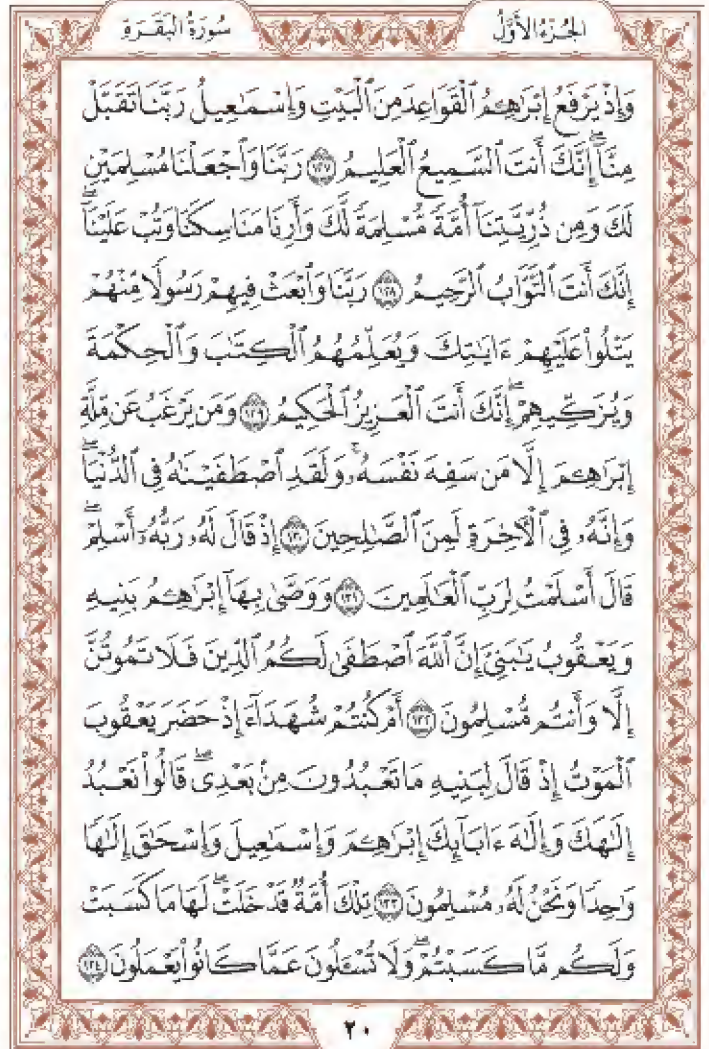 سُورَةُ الْبَقَـرَةِ
الجُزْءُ الأَوَّلُ
وَإِذْ يَرْفَعُ إِبْرَٰهِـۧمُ ٱلْقَوَاعِدَ مِنَ ٱلْبَيْتِ وَإِسْمَـٰعِيلُ رَبَّنَا تَقَبَّلْ
مِنَّآ ۖ إِنَّكَ أَنتَ ٱلسَّمِيعُ ٱلْعَلِيمُ ۝١٢٧ رَبَّنَا وَٱجْعَلْنَا مُسْلِمَيْنِ
لَكَ وَمِن ذُرِّيَّتِنَآ أُمَّةً مُّسْلِمَةً لَّكَ وَأَرِنَا مَنَاسِكَنَا وَتُبْ عَلَيْنَآ ۖ
إِنَّكَ أَنتَ ٱلتَّوَّابُ ٱلرَّحِيمُ ۝١٢٨ رَبَّنَا وَٱبْعَثْ فِيهِمْ رَسُولًا مِّنْهُمْ
يَتْلُوا۟ عَلَيْهِمْ ءَايَـٰتِكَ وَيُعَلِّمُهُمُ ٱلْكِتَـٰبَ وَٱلْحِكْمَةَ
وَيُزَكِّيهِمْ ۚ إِنَّكَ أَنتَ ٱلْعَزِيزُ ٱلْحَكِيمُ ۝١٢٩ وَمَن يَرْغَبُ عَن مِّلَّةِ
إِبْرَٰهِـۧمَ إِلَّا مَن سَفِهَ نَفْسَهُۥ ۚ وَلَقَدِ ٱصْطَفَيْنَـٰهُ فِى ٱلدُّنْيَا ۖ
وَإِنَّهُۥ فِى ٱلْـَٔاخِرَةِ لَمِنَ ٱلصَّـٰلِحِينَ ۝١٣٠ إِذْ قَالَ لَهُۥ رَبُّهُۥٓ أَسْلِمْ ۖ
قَالَ أَسْلَمْتُ لِرَبِّ ٱلْعَـٰلَمِينَ ۝١٣١ وَوَصَّىٰ بِهَآ إِبْرَٰهِـۧمُ بَنِيهِ
وَيَعْقُوبُ يَـٰبَنِىَّ إِنَّ ٱللَّهَ ٱصْطَفَىٰ لَكُمُ ٱلدِّينَ فَلَا تَمُوتُنَّ
إِلَّا وَأَنتُم مُّسْلِمُونَ ۝١٣٢ أَمْ كُنتُمْ شُهَدَآءَ إِذْ حَضَرَ يَعْقُوبَ
ٱلْمَوْتُ إِذْ قَالَ لِبَنِيهِ مَا تَعْبُدُونَ مِنۢ بَعْدِى ۖ قَالُوا۟ نَعْبُدُ
إِلَـٰهَكَ وَإِلَـٰهَ ءَابَآئِكَ إِبْرَٰهِـۧمَ وَإِسْمَـٰعِيلَ وَإِسْحَـٰقَ إِلَـٰهًا
وَٰحِدًا وَنَحْنُ لَهُۥ مُسْلِمُونَ ۝١٣٣ تِلْكَ أُمَّةٌ قَدْ خَلَتْ ۖ لَهَا مَا كَسَبَتْ
وَلَكُم مَّا كَسَبْتُمْ ۖ وَلَا تُسْـَٔلُونَ عَمَّا كَانُوا۟ يَعْمَلُونَ ۝١٣٤
٢٠